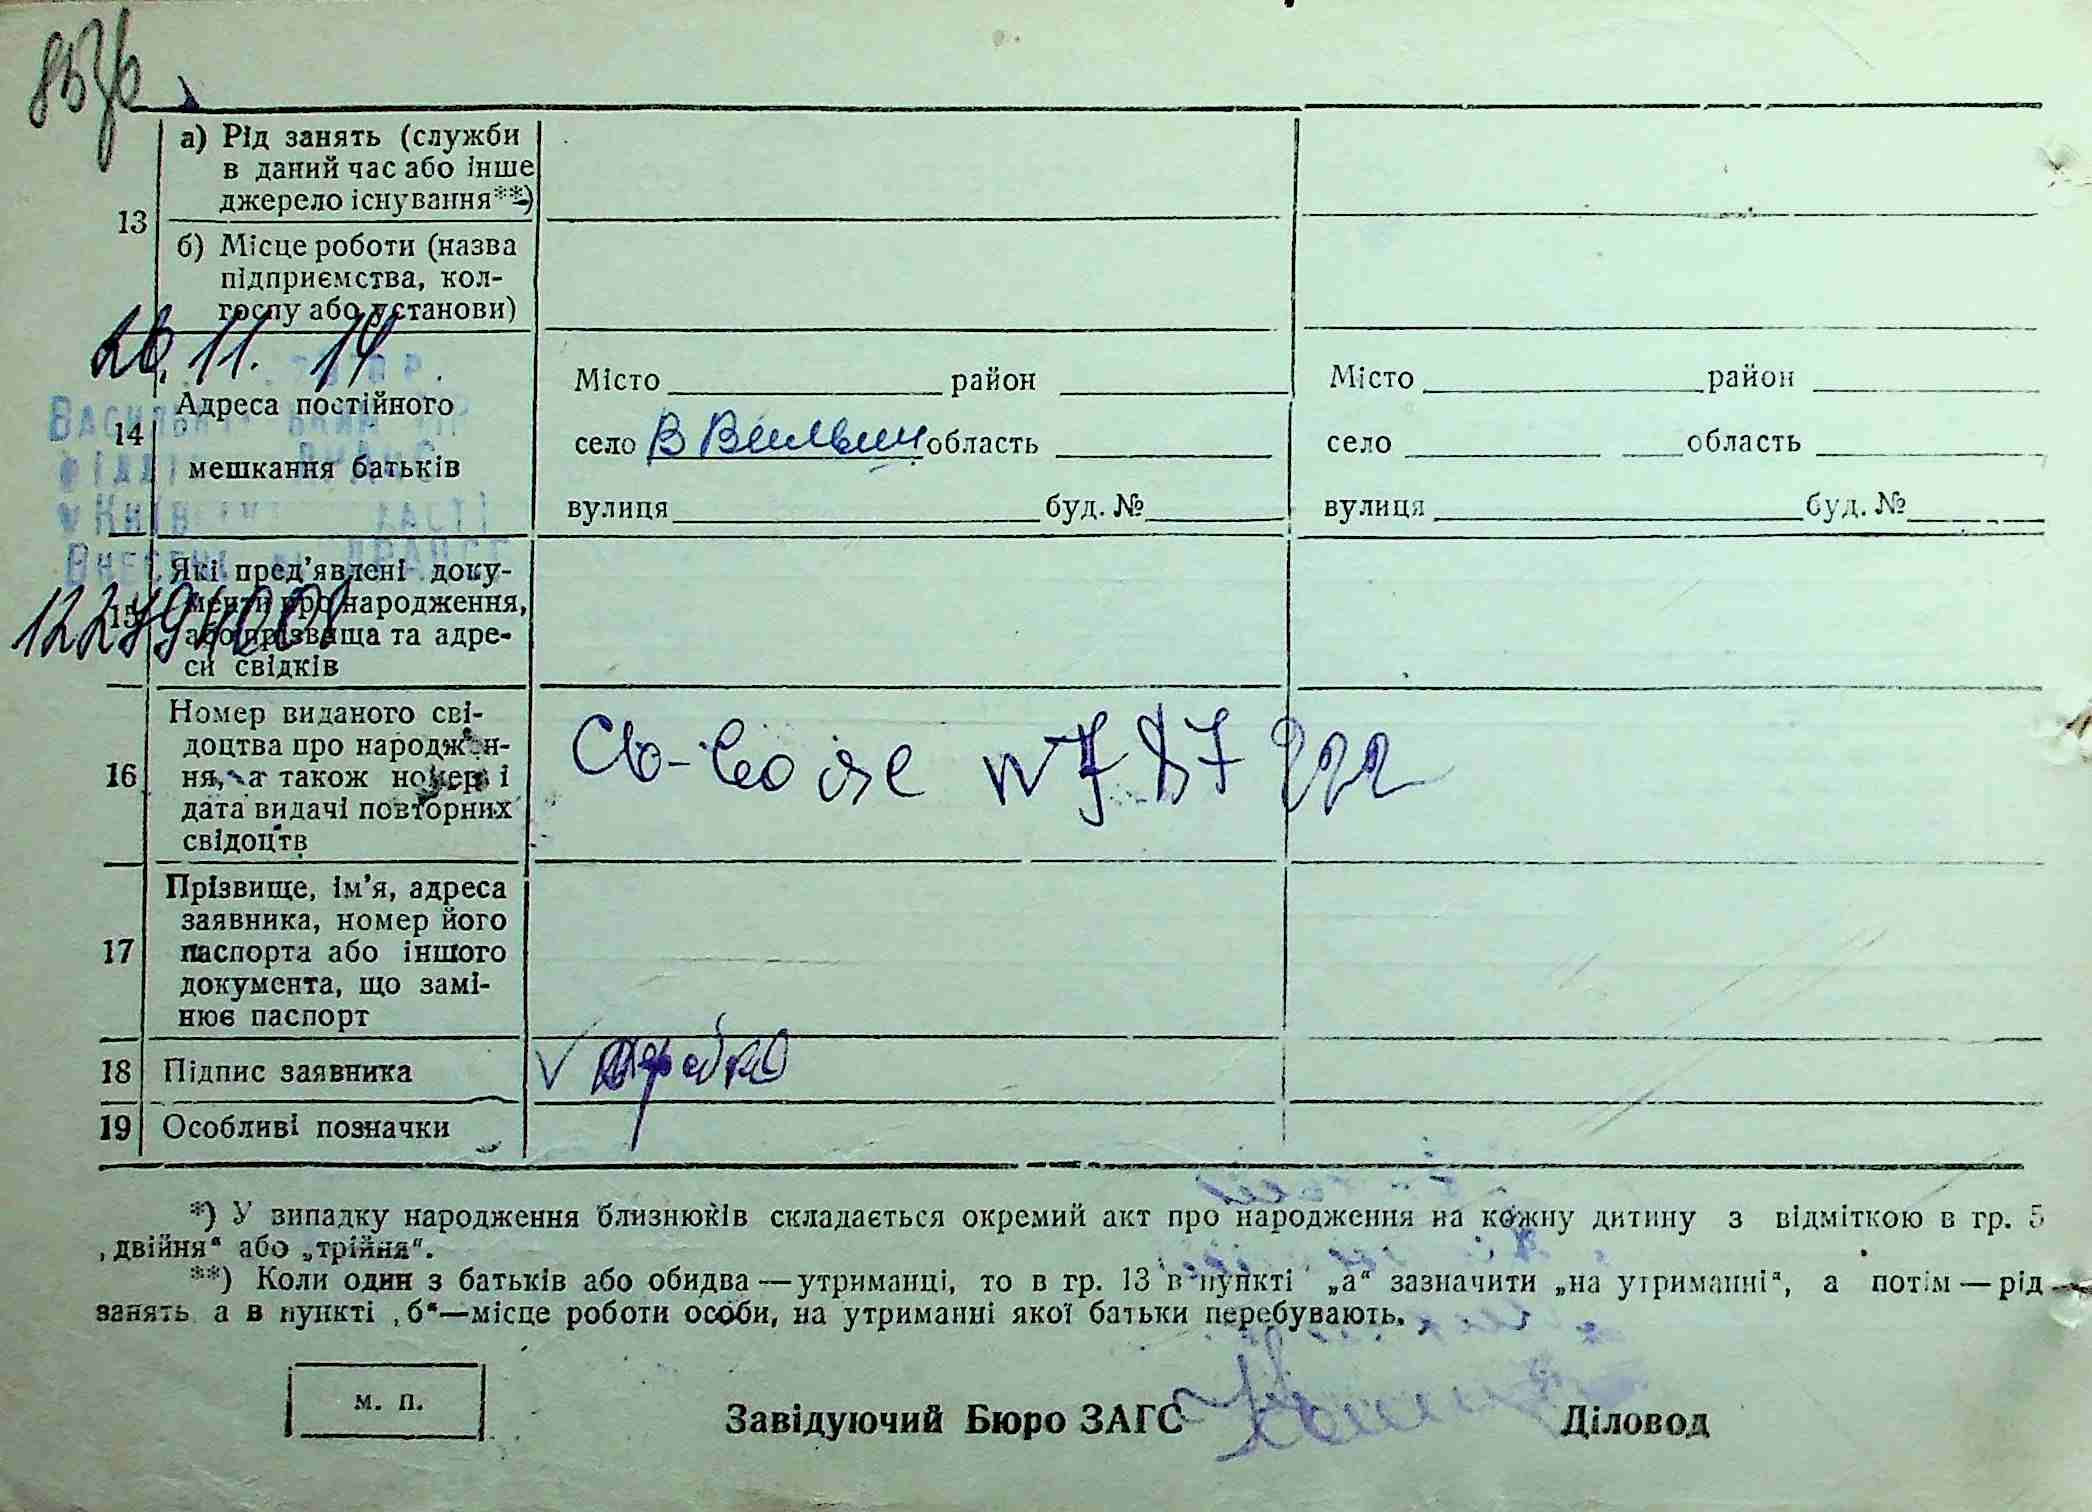 13
а) Рід занять (служби
в даний час або інше
джерело існування**)
б) Місце роботи (назва
підприємства, кол-
госпу або установи)
26.11.14
14
Адреса постійного
мешкання батьків
Місто район
село В Вильшан область
вулиця буд. №
Місто район
село область
вулиця буд. №
15
Які пред’явлені доку-
менти про народження,
або прізвища та адре-
си свідків
16
Номер виданого сві-
доцтва про народжен-
ня, а також номер і
дата видачі повторних
свідоцтв
17
Прізвище, ім’я, адреса
заявника, номер його
паспорта або іншого
документа, що замі-
нює паспорт
18
Підпис заявника
19
Особливі позначки
*) У випадку народження близнюків складається окремий акт про народження на кожну дитину з відміткою в гр. 5
„двійня“ або „трійня“.
**) Коли один з батьків або обидва—утриманці, то в гр. 13 в пункті „а“ зазначити „на утриманні“, а потім—рід
занять а в пункті „б“—місце роботи особи, на утриманні якої батьки перебувають.
м. п.
Завідуючий Бюро ЗАГС
Діловод